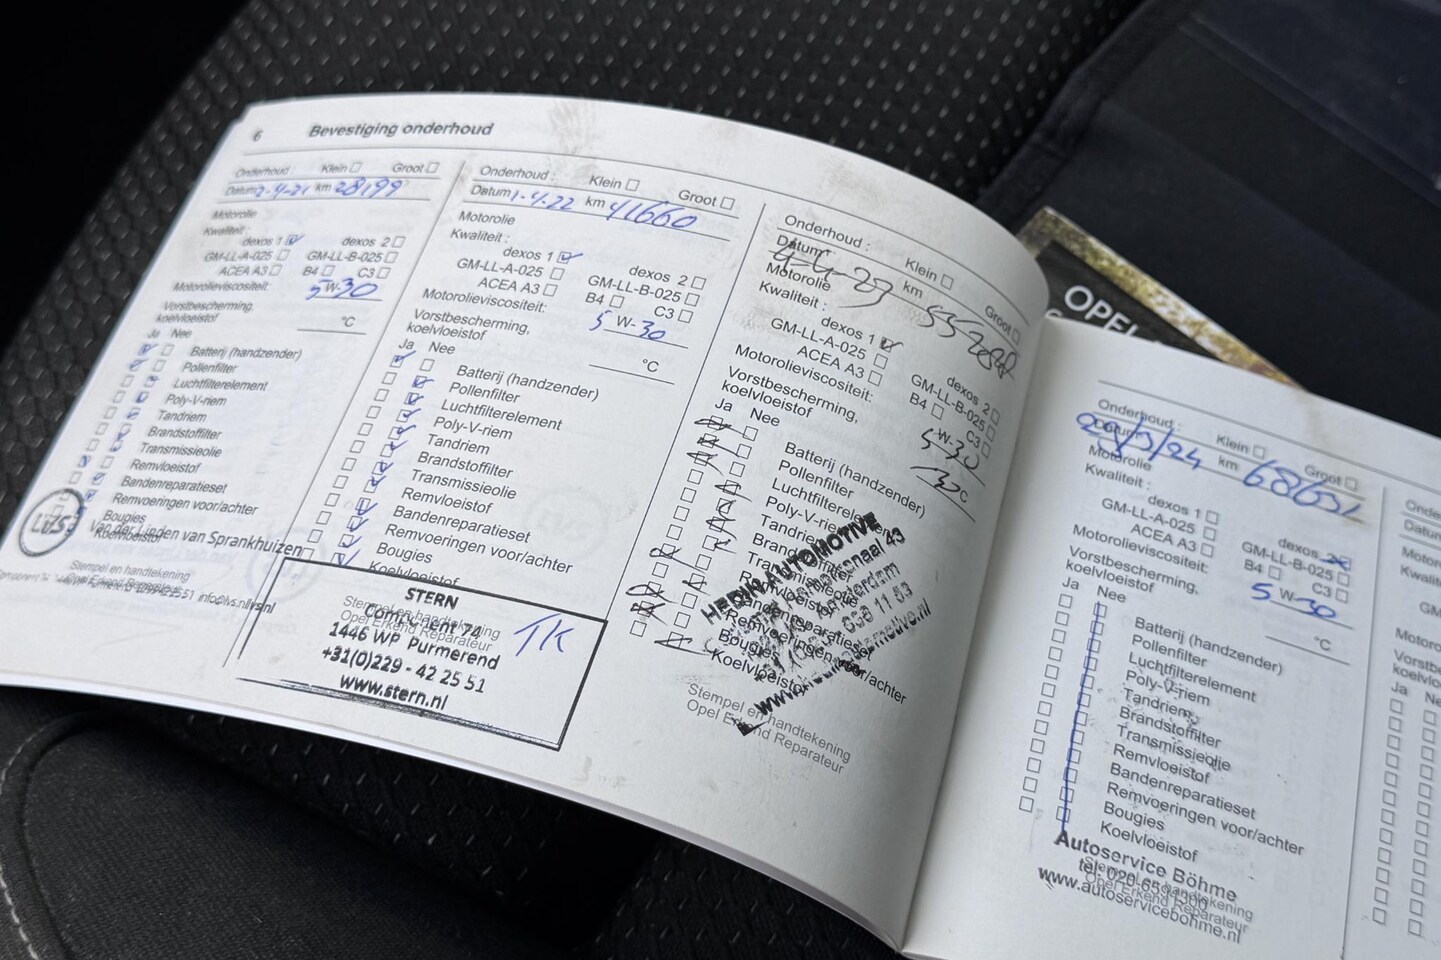 6 Bevestiging onderhoud
Onderhoud : Klein Groot
Datum 2-4-21 km 28199
Motorolie
Kwaliteit :
dexos 1 dexos 2
GM-LL-A-025 GM-LL-B-025
ACEA A3 B4 C3
Motorolieviscositeit: 5 W-30
Vorstbescherming,
koelvloeistof °C
Ja Nee
Batterij (handzender)
Pollenfilter
Luchtfilterelement
Poly-V-riem
Tandriem
Brandstoffilter
Transmissieolie
Remvloeistof
Bandenreparatieset
Remvoeringen voor/achter
Bougies
Koelvloeistof
Van der Linden van Sprankhuizen
Stempel en handtekening
Opel Erkend Reparateur
Onderhoud : Klein Groot
Datum 1-4-22 km 41660
Motorolie
Kwaliteit :
dexos 1 dexos 2
GM-LL-A-025 GM-LL-B-025
ACEA A3 B4 C3
Motorolieviscositeit: 5 W-30
Vorstbescherming,
koelvloeistof °C
Ja Nee
Batterij (handzender)
Pollenfilter
Luchtfilterelement
Poly-V-riem
Tandriem
Brandstoffilter
Transmissieolie
Remvloeistof
Bandenreparatieset
Remvoeringen voor/achter
Bougies
Koelvloeistof
STERN
Component 74
1446 WP Purmerend
+31(0)229 - 42 25 51
www.stern.nl
TK
Stempel en handtekening
Opel Erkend Reparateur
Onderhoud : Klein Groot
Datum 4-4-23 km
Motorolie
Kwaliteit :
dexos 1 dexos 2
GM-LL-A-025 GM-LL-B-025
ACEA A3 B4 C3
Motorolieviscositeit: 5 W-30
Vorstbescherming,
koelvloeistof °C
Ja Nee
Batterij (handzender)
Pollenfilter
Luchtfilterelement
Poly-V-riem
Tandriem
Brandstoffilter
Transmissieolie
Remvloeistof
Bandenreparatieset
Remvoeringen voor/achter
Bougies
Koelvloeistof
HEDIN AUTOMOTIVE
Stempel en handtekening
Opel Erkend Reparateur
OPEL
Onderhoud : Klein Groot
Datum km 68631
Motorolie
Kwaliteit :
dexos 1 dexos 2
GM-LL-A-025 GM-LL-B-025
ACEA A3 B4 C3
Motorolieviscositeit: 5 W-30
Vorstbescherming,
koelvloeistof °C
Ja Nee
Batterij (handzender)
Pollenfilter
Luchtfilterelement
Poly-V-riem
Tandriem
Brandstoffilter
Transmissieolie
Remvloeistof
Bandenreparatieset
Remvoeringen voor/achter
Bougies
Koelvloeistof
Autoservice Böhme
www.autoservicebohme.nl
Stempel en handtekening
Opel Erkend Reparateur
Ja